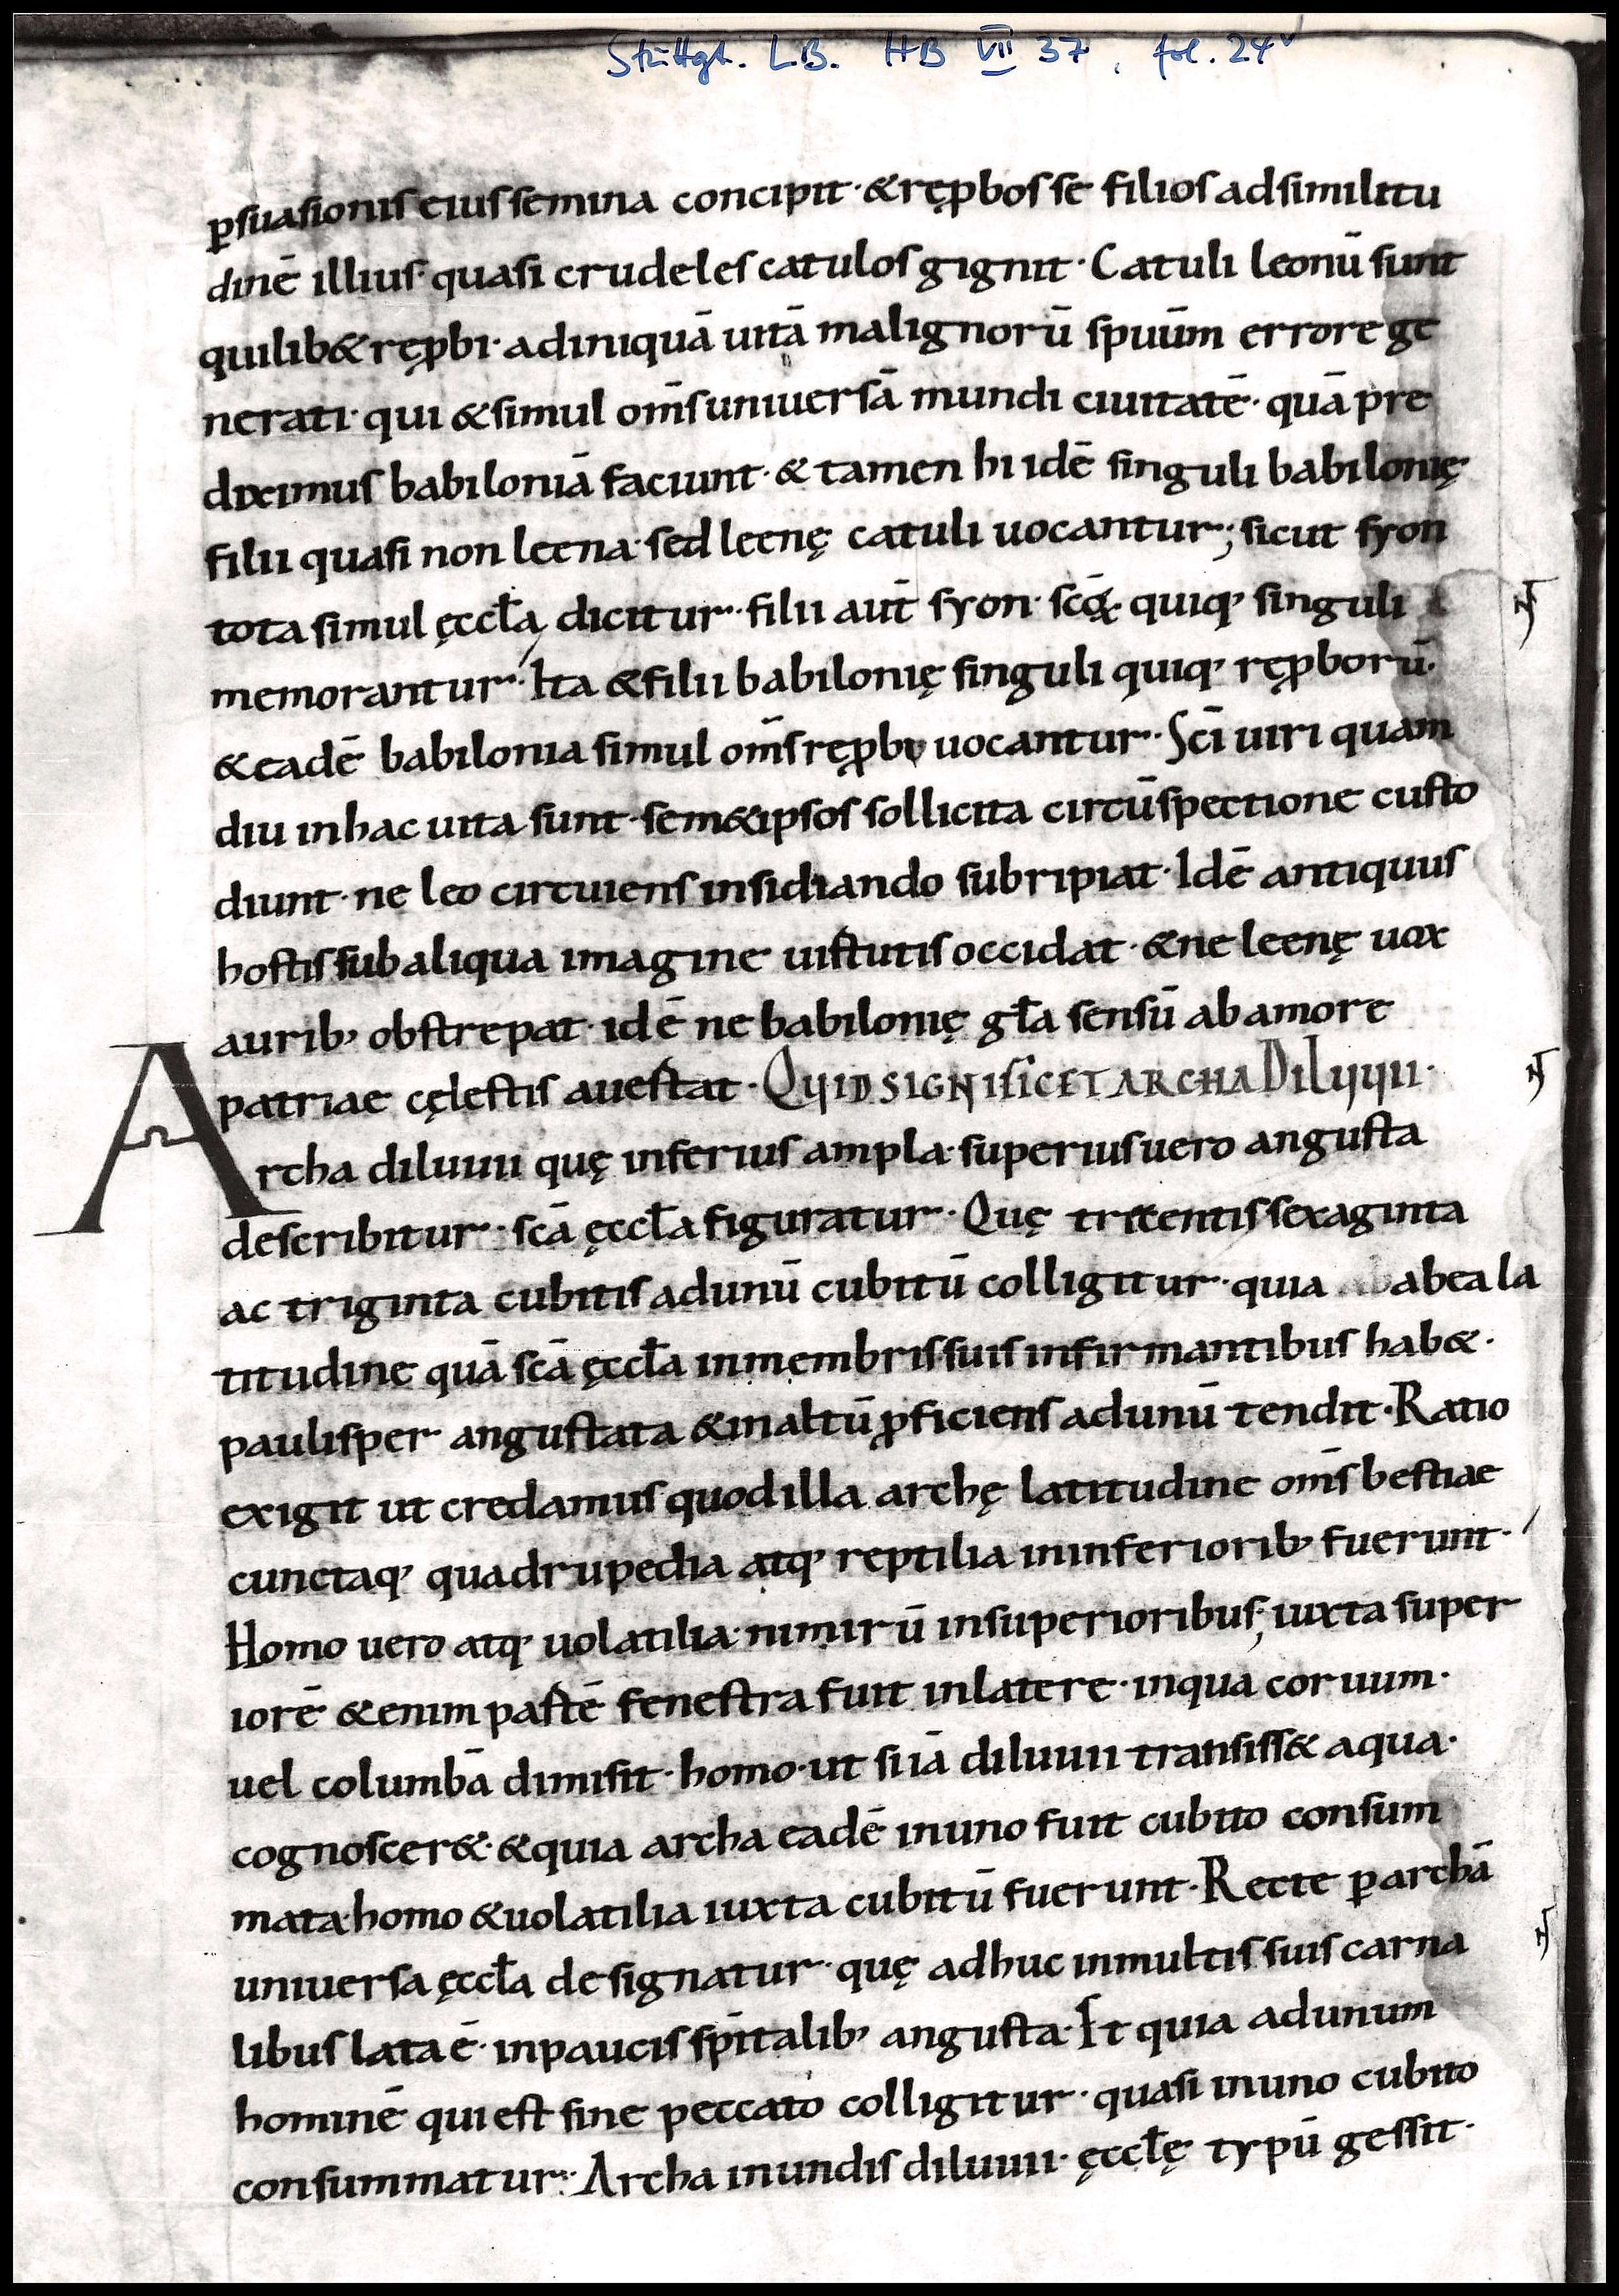 Stuttgt. L.B. HB VII 37, fol. 24v
ꝑsuasionis eius semina concipit · & rep̱bos se filios adsimilitu
dinē illius · quasi crudeles catulos gignit · Catuli leonū sunt
quilib& rep̱bi · adiniquā uitā malignorū spuūm errore ge
nerati · qui & simul om̄s uniuersā mundi ciuitatē · quā pre
diximus babiloniā faciunt · & tamen hi idē singuli babilonię
filii quasi non leena · sed leenę catuli uocantur; sicut syon
tota simul ęccła dicitur · filii aut̄ syon · scōꝝ quiq; singuli
memorantur · Ita & filii babilonię singuli quiq; reꝓborū ·
& eadē babilonia simul om̄s reꝓbi uocantur · Sc̄i uiri quam
diu inhac uita sunt · sem&ipsos sollicita circū spectione custo
diunt · ne leo circuiens insidiando subripiat · Idē antiquus
hostis sub aliqua imagine uirtutis occidat · & ne leenę uox
aurib; obstrepat · idē ne babilonię gła sensū ab amore
patriae cęlestis auertat · QUID SIGNIFICET ARCHA DILUUII ·
Archa diluuii quę inferius ampla · superius uero angusta
describitur · scā ęccła figuratur · Quę tricentis sexaginta
ac triginta cubitis adunū cubitū colligitur · quia abea la
titudine quā scā ęccła inmembris suis infirmantibus hab& ·
paulisper angustata & inaltū ꝓficiens adunū tendit · Ratio
exigit ut credamus quod illa archę latitudine om̄s bestiae
cunctaq; quadrupedia atq; reptilia ininferiorib; fuerunt ·
Homo uero atq; uolatilia · nimirū insuperioribus; iuxta super
iorē &enim partē fenestra fuit inlatere · inqua coruum ·
uel columbā dimisit · homo · ut si iā diluuii transiss& aqua ·
cognoscer& · & quia archa eadē inuno fuit cubito consum
mata · homo & uolatilia iuxta cubitū fuerunt · Recte ꝑ archā
uniuersa ęccła designatur · quę adhuc inmultis suis carna
libus lata ē · inpaucis spīitalib; angusta · Et quia adunum
hominē qui est sine peccato colligitur · quasi inuno cubito
consummatur · Archa inundis diluuii · ęccłę typū gessit ·